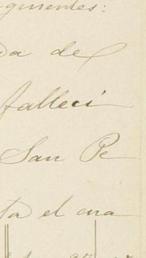 guientes:
da de
falleci
San Pe
ta el ma